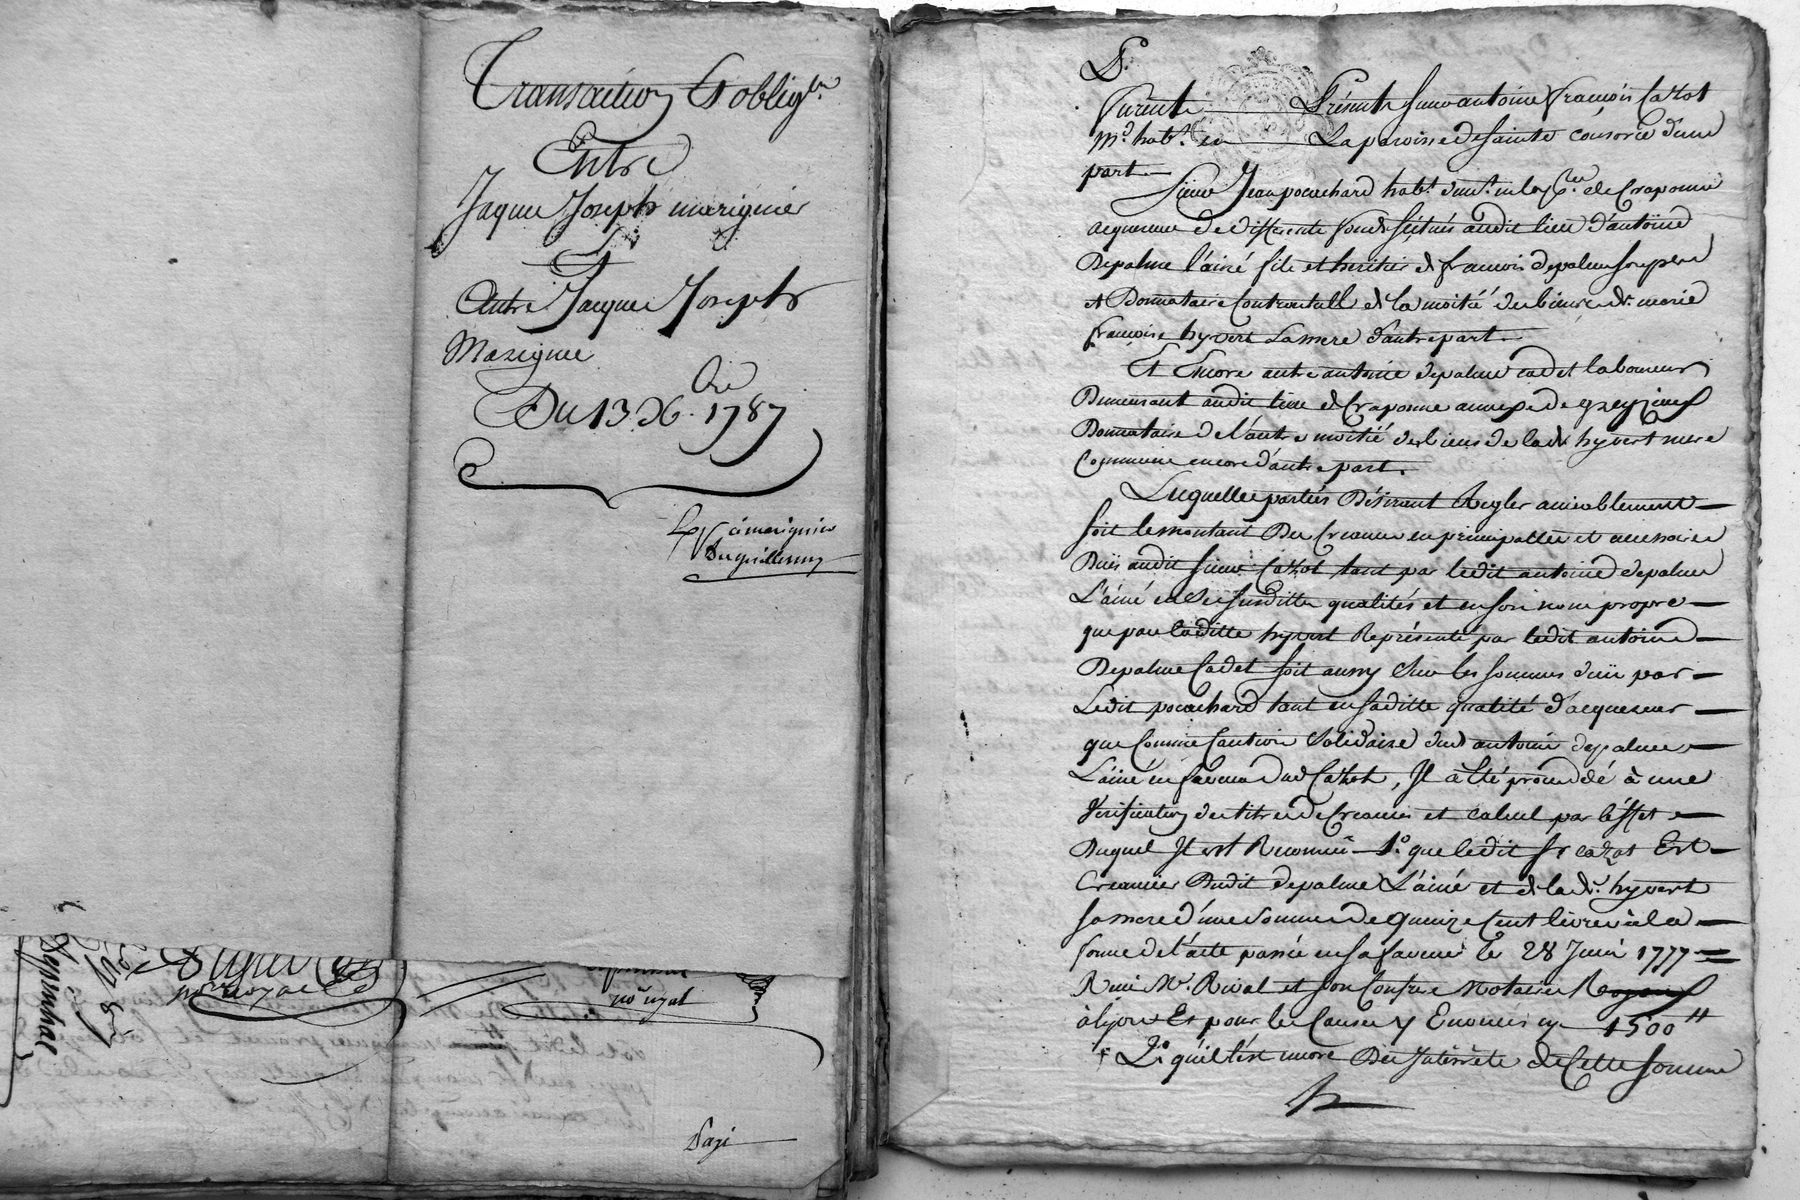 Transaction & oblig.on
Entre
Jaques Joseph marignier
&
Autre Jacques Joseph
Marignier
Du 13 Xbre 1787
Exp. à marignier
Duguillermy
no. royal
no. royal
Payé
D.
Furent Présents Sieur antoine françois Cazot
Md. habt. en La paroisse de sainte consorce d'une
part
Sieur Jean pocachard habt. de Craponne
acquereur de differents fonds scitués audit lieu d'antoine
Depalme l'ainé fils et heritier de francois depalme son pere
et Donnataire Contractuell de la moitié des biens de marie
francoise hyvert sa mere d'autre part
Et Encore autre antoine depalme cadet laboureur
Demeurant audit lieu de Craponne annexe de grezieu
Donnataire de l'autre moitié des biens de lade. hyvert mere
Commune encore d'autre part.
Lesquelles parties Désirant Regler amiablement
soit le montant Des Creances en principalles et accessoires
Dües audit sieur Cazot tant par ledit antoine depalme
L'ainé en Ses susdittes qualités et en son nom propre
que par laditte hyvert Représenté par ledit antoine
Depalme Cadet soit aussy Sur les sommes düe par
Ledit pocachard tant en saditte qualité d'acquereur
que Comme Caution Solidaire dud. antoine depalme
L'ainé en faveur dud. Cazot, Il a été procedé à une
Verification des titres de Creances et calcul par l'éffet
Duquel Il est Reconnu 1°. que ledit sr cazot Est
Creancier Dudit depalme L'ainé et de lade. hyvert
sa mere d'une Somme de quinze Cent livres à la
forme de l'acte passé en sa faveur le 28 Juin 1777
Reçu Me. Rival et son Confrere Notaires Royaux
à lyon Et pour les Causes y Enoncés cy 1500 ₶
2°. qu'il l'ést encore Des Interrêts de Cette somme